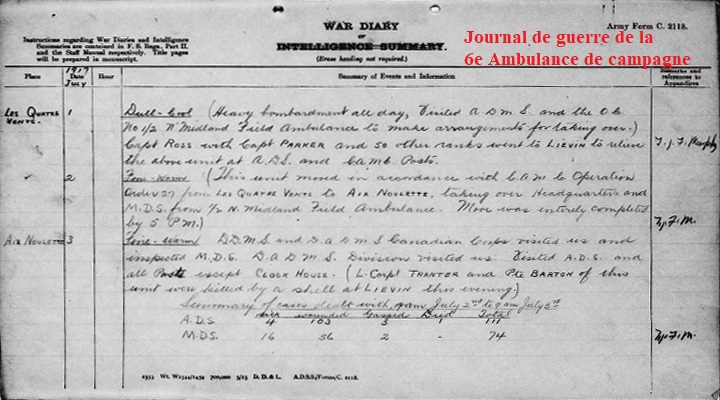 WAR DIARY
OF
INTELLIGENCE SUMMARY.
(Erase heading not required.)
Army Form C. 2118.
Instructions regarding War Diaries and Intelligence
Summaries are contained in F. S. Regs., Part II.
and the Staff Manual respectively. Title pages
will be prepared in manuscript.
Journal de guerre de la
6e Ambulance de campagne
Place
1917
Date
July
Hour
Summary of Events and Information
Remarks and
references to
Appendices
Les Quatre
Vents.
1
Dull-Cool (Heavy bombardment all day, Visited A.D.M.S. and the O.C.
No 1/2 N Midland Field Ambulance to make arrangements for taking over.)
Capt Ross with Capt Parker and 50 other ranks went to Lievin to relieve
the above unit at A.D.S. and Posts.
2
Fine-Warm (This unit moved in accordance with Operation
Order 27 from Les Quatre Vents to Aix Noulette, taking over Headquarters and
M.D.S. from 1/2 N. Midland Field Ambulance. Move was entirely completed
by 5 P.M.)
Aix Noulette
3
Fine-Warm D.D.M.S. and D.A.D.M.S Canadian Corps visited us and
inspected M.D.S. D.A.D.M.S. Division visited us. Visited A.D.S. and
all Posts except Clock House. (L-Corpl Tranter and Pte Barton of this
unit were killed by a shell at Lievin this evening.)
Summary of cases dealt with, 9 am July 2nd to 9 am July 3rd
Sick wounded Gassed Died Total
A.D.S. 4 103 3 1 111
M.D.S. 16 56 2 - 74
T.F.M.
T.F.M.
2353 Wt. W2544/1454 700,000 5/15 D. D. & L. A.D.S.S./Forms/C. 2118.